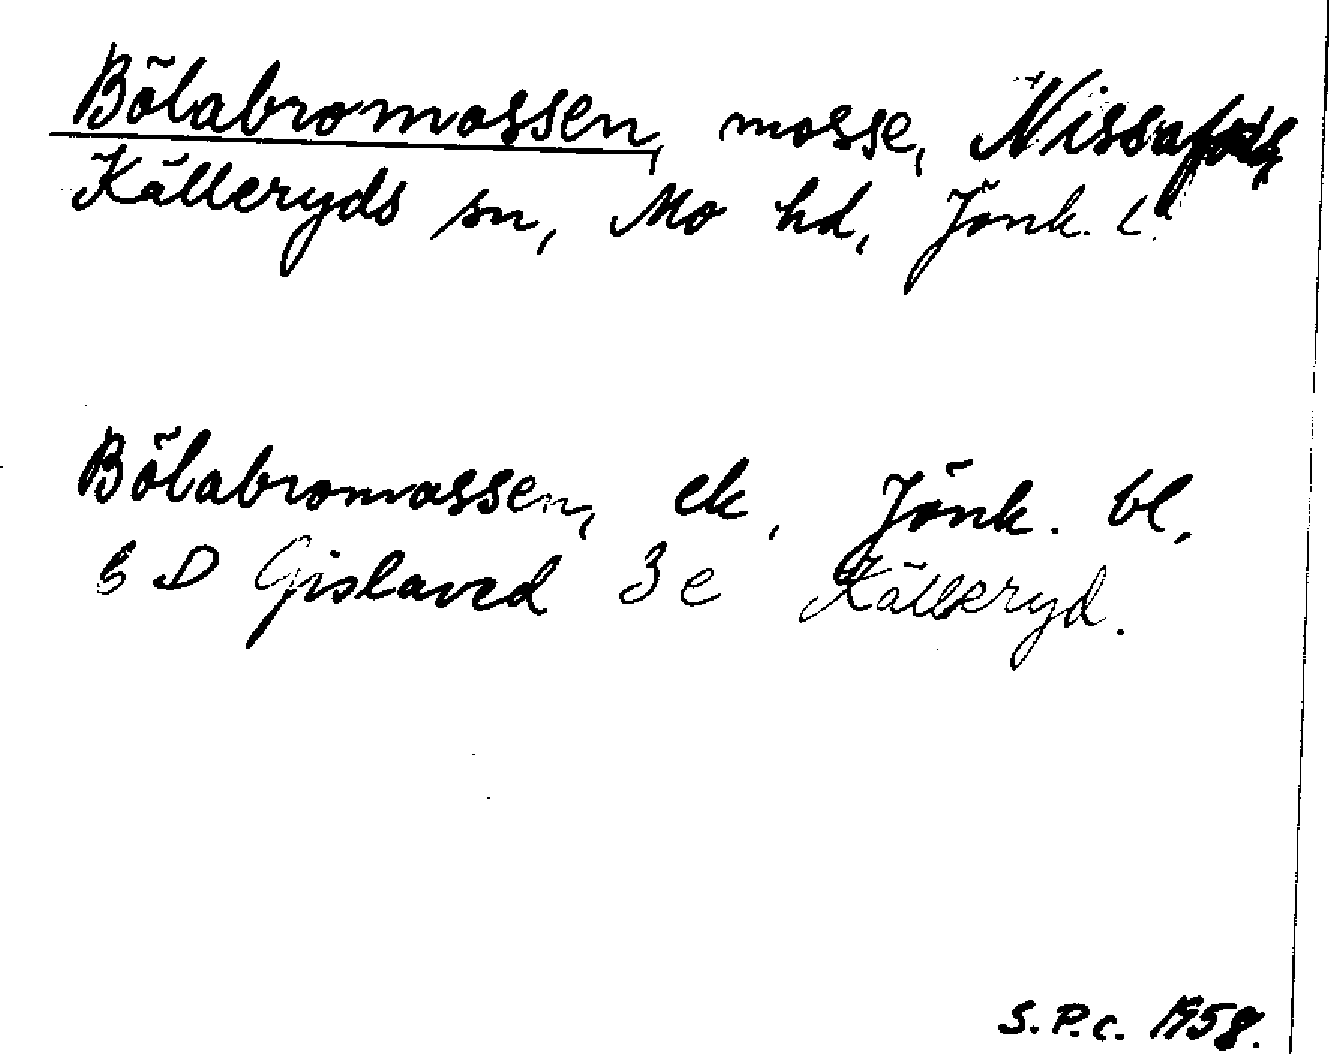 Bölabromossen, mosse, Nissafors,
Källeryds sn, Mo hd, Jönk. l.
Bölabromossen, ek, Jönk. bl.
5 D Gislaved 3 e Källeryd.
S.P.C. 1958.